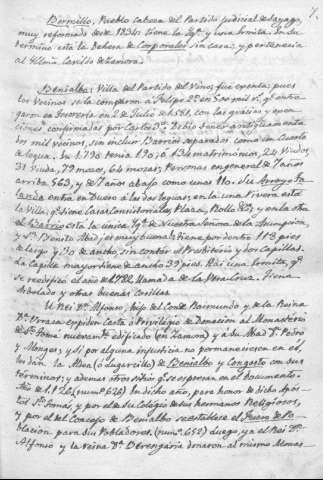 7.
Bermillo, Pueblo cabeza del Partido judicial de Sayago,
muy reformado desde 1834: tiene la Ygª y una hermita. En su
termino está la Dehesa de Corporales sin casa; y pertenecia
al Cavildo de Zamora.
Benialbo: Villa del Partido del Vino; fue exenta; pues
los Vecinos se la compraron a Felipe 2º en
garon en Tesoreria en 2 de Julio de 1581, con las gracias y
ciones confirmadas por Carlos 3º. Debio tener antiguamente
dos mil vecinos, sin incluir Barrios separados como un Cuarto
de legua. En 1796 tenia 190, ó 134 matrimonios, 24 Viudos,
31 Viuda, 79 mozos, 64 mozas; Personas en general de 7 años
arriba 563, y de 7 años abajo como unas 110. Su Arroyo ta-
landa entra en Duero a las dos leguas; en una Rivera está
la Villa, qº tiene Casas Consistoriales, Plaza, Rollo &ª; y en la otra
el Barrio está la única Ygª de Nuestra Señora de la Asumpcion,
y Sn Benito Abad; es muy buena; tiene por dentro 113 pies
de largo y 30 de ancho sin contar el Presbiterio y dos Capillas.
La Capilla mayor tiene de ancho 39 pies. Hai una hermita, qº
se reedificó el año de 1782 llamada de la Veracruz. Tiene
Arbolado y otras buenas cosillas.
El Rei Dn Alfonso, hijo del Conde Raimundo y de la Reina
Dª Urraca expiden Carta ó Privilegio de Donacion al Monasterio
de Sto Tomé, nuevamente edificado (en Zamora) y a su Abad Dn Pedro
y Monges; y si por alguna injusticia no permaneciesen en él,
les dan la Aldea (ó lugarcillo) de Benialbo y Congosto con sus
terminos; y ademas otros sitios qº se expresan en el documento.
Año de 1126 (numº 626) En dicho año, para honor de dicho Apos-
tol Sto Tomás, y por el de su Colegio de sus hermanos Religiosos,
y por el del Concejo de Benialbo se establece el Fuero de Po-
blacion para sus Pobladores. (numº 652) Luego, ya el Rei Dn
Alfonso y la reina Dª Berenguria donaron al mismo